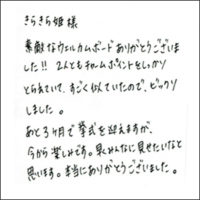 きらきら姫様
素敵なウェルカムボードありがとうございま
した!! 2人ともチャームポイントをしっかり
とらえていて、すごく似ていたので、ビックリ
しました。
あと3ヶ月で挙式を迎えますが、
今から楽しみです。早くみんなに見せたいなと
思います。本当にありがとうございました。